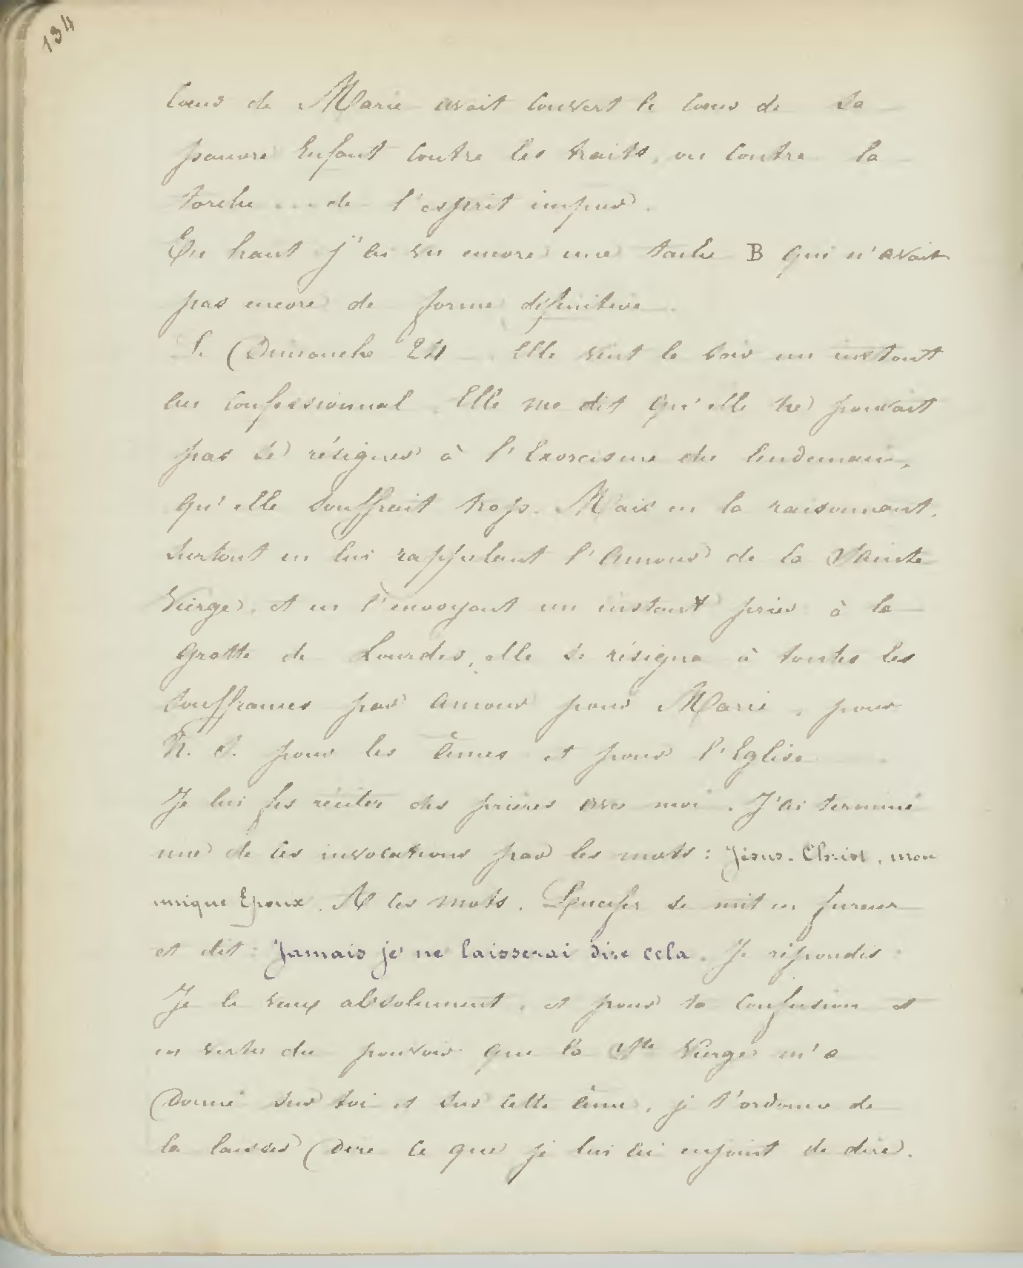 134
Cœur de Marie avait couvert le cœur de sa
pauvre Enfant contre les traits, ou contre la
torche ... de l'esprit impur.
En haut j'ai vu encore une tache B qui n'avait
pas encore de forme définitive.
Le Dimanche 24 - Elle vint le soir un instant
au confessionnal. Elle me dit qu'elle ne pouvait
pas se résigner à l'Exorcisme du lendemain,
qu'elle souffrait trop. Mais en la raisonnant,
surtout en lui rappelant l'Amour de la Sainte
Vierge, et en l'envoyant un instant prier à la
Grotte de Lourdes, elle se résigna à toutes les
souffrances par amour pour Marie, pour
N. S. pour les âmes et pour l'Eglise
Je lui fis réciter des prières avec moi. J'ai terminé
une de ces invocations par les mots : Jésus-Christ, mon
unique Epoux. A ces mots, Lucifer se mit en fureur
et dit : Jamais je ne laisserai dire cela. Je répondis :
Je le veux absolument, et pour ta confusion et
en vertu du pouvoir que la Ste Vierge m'a
Donné sur toi et sur cette âme, je t'ordonne de
la laisser Dire ce que je lui ai enjoint de dire.